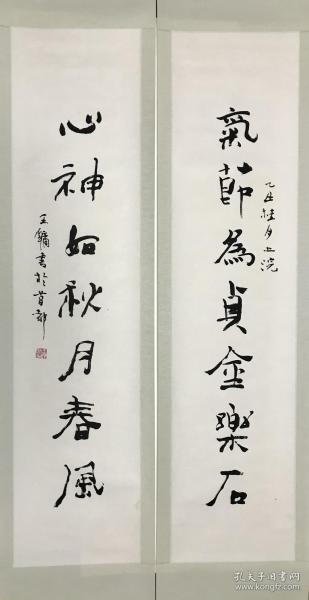 氣節為貞金樂石
乙丑桂月上浣
心神如秋月春風
王鏞書於首都
孔夫子旧书网